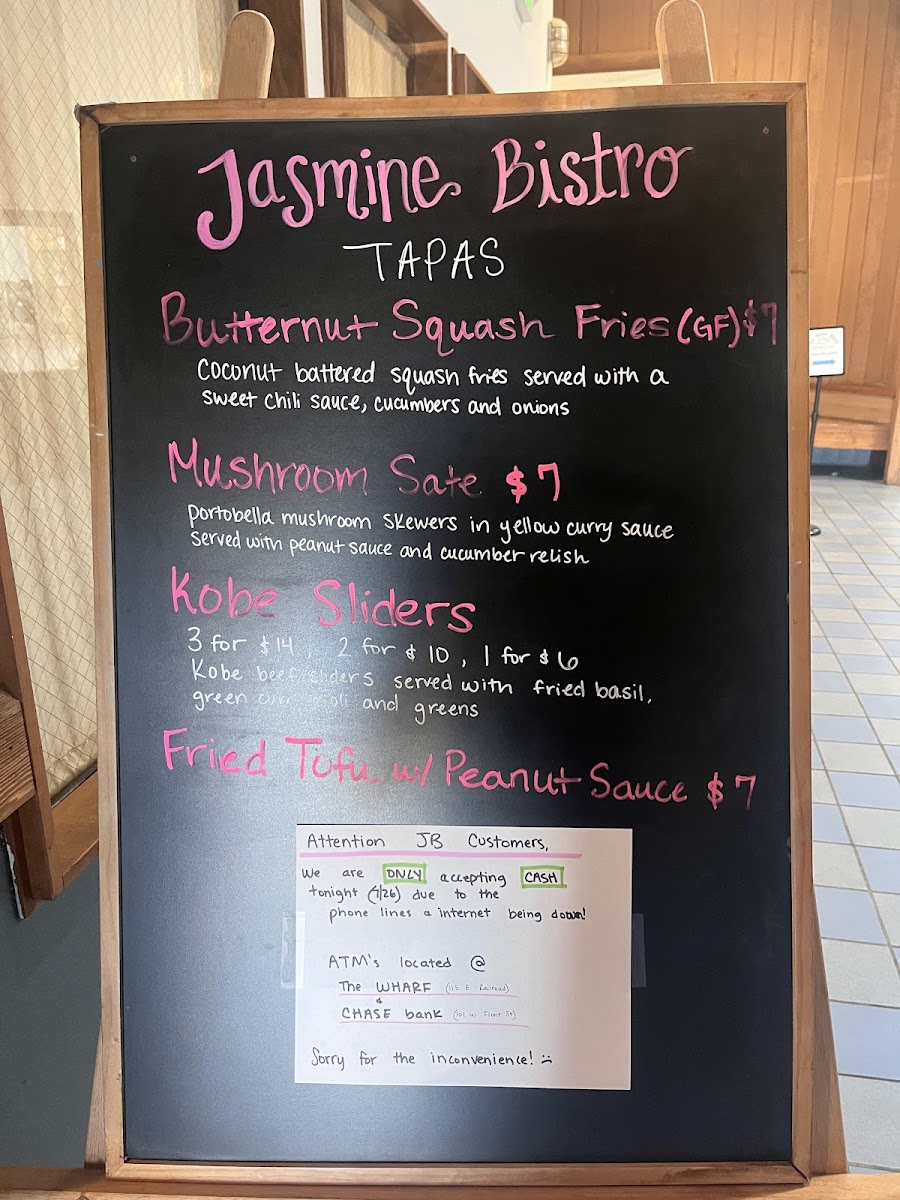 Jasmine Bistro
TAPAS
Butternut Squash Fries (GF) $7
Coconut battered squash fries served with a
sweet chili sauce, cucumbers and onions
Mushroom Sate $7
portobella mushroom skewers in yellow curry sauce
served with peanut sauce and cucumber relish
Kobe Sliders
3 for $14, 2 for $10, 1 for $6
Kobe beef sliders served with fried basil,
green and greens
Fried Tofu w/ Peanut Sauce $7
Attention JB Customers,
We are ONLY accepting CASH
tonight (7/26) due to the
phone lines & internet being down!
ATM's located @
The WHARF (115 E Railroad)
&
CHASE bank (101 W Front St)
Sorry for the inconvenience! :(